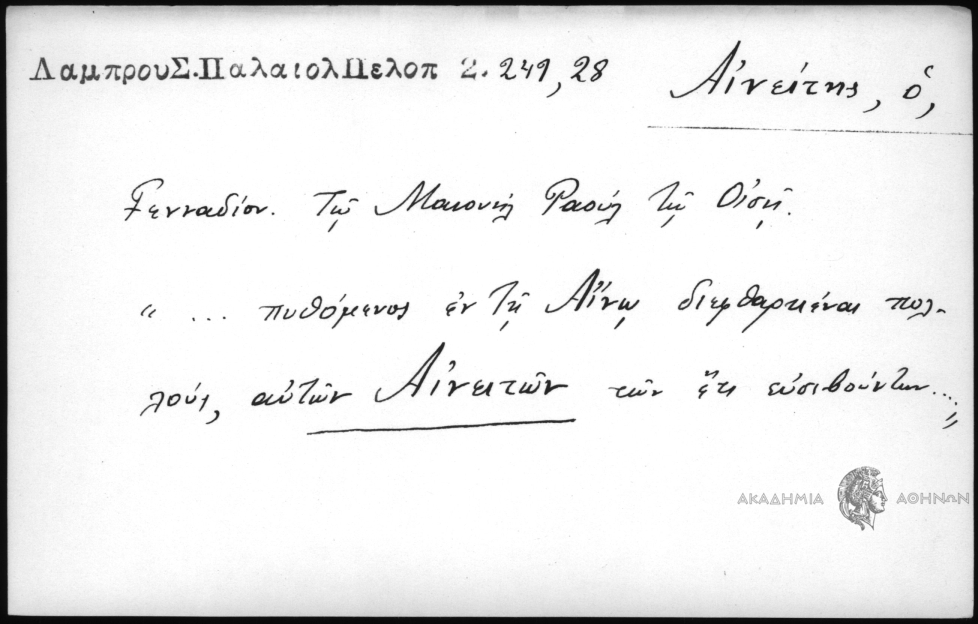 ΛαμπρουΣ.ΠαλαιολΠελοπ 2. 249, 28
Αἰνείτης, ὁ,
Γενναδίου. Τῷ Μανουὴλ Ραοὺλ τῷ Οἰσῇ.
" ... πυθόμενος ἐν τῇ Αἴνῳ διεφθαρκέναι πολ-
λούς, αὐτῶν Αἰνειτῶν τῶν ἔτι εὐσεβούντων....,,
ΑΚΑΔΗΜΙΑ ΑΘΗΝΩΝ